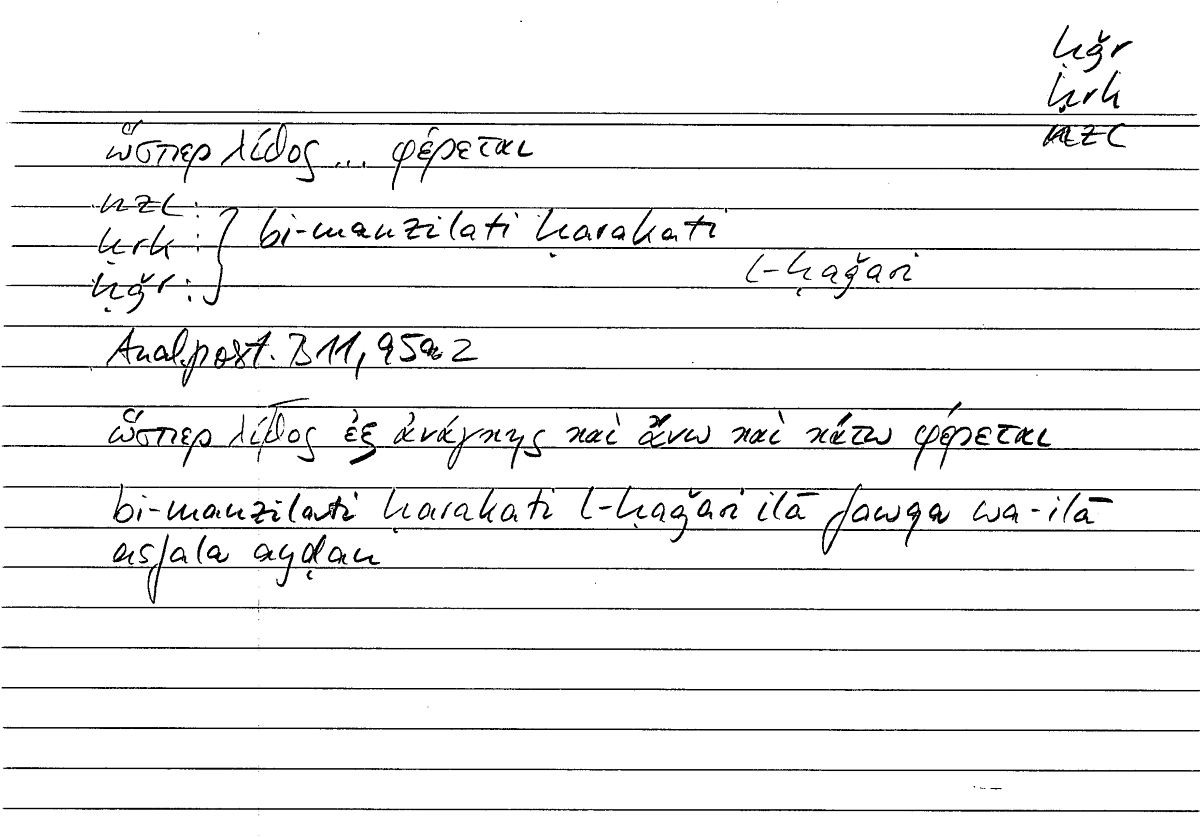 ḥǧr
ḥrk
nzl
ὥσπερ λίθος ... φέρεται
nzl :
ḥrk : } bi-manzilati ḥarakati
l-ḥaǧari
ḥǧr :
Anal. post. B 11, 95a2
ὥσπερ λίθος ἐξ ἀνάγκης καὶ ἄνω καὶ κάτω φέρεται
bi-manzilati ḥarakati l-ḥaǧari ilā fawqa wa-ilā
asfala ayḍan